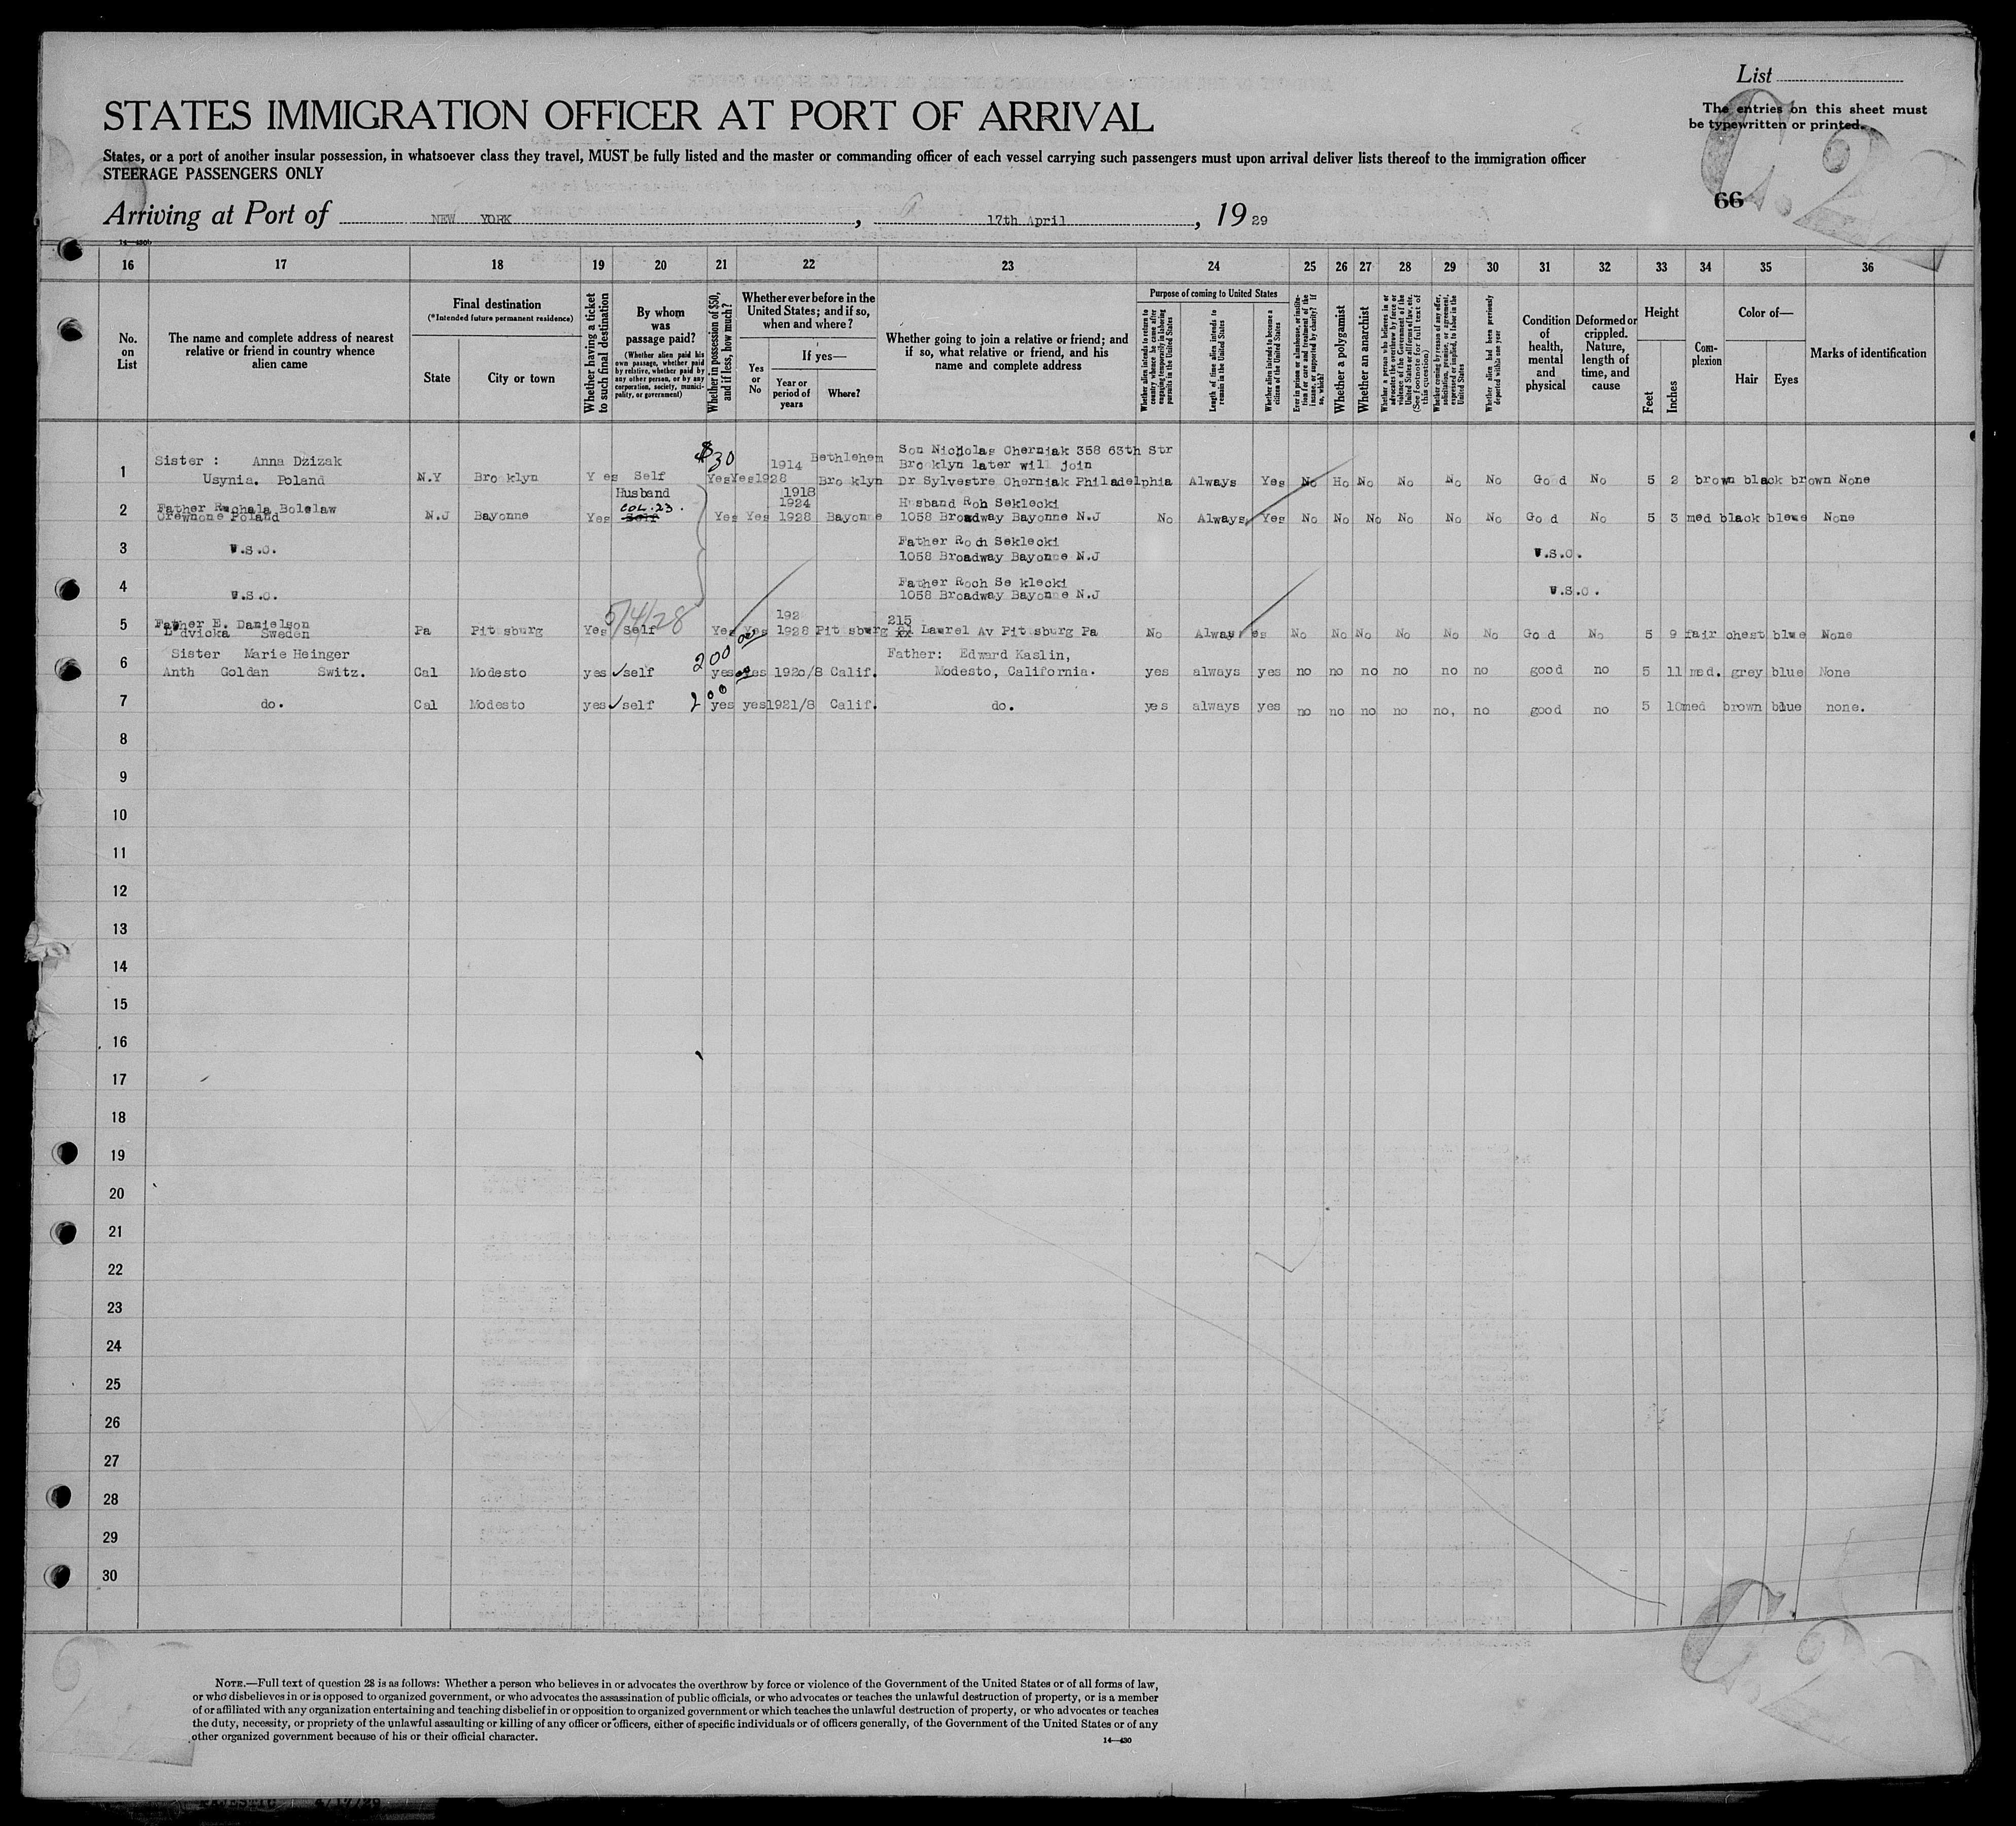 List
STATES IMMIGRATION OFFICER AT PORT OF ARRIVAL
The entries on this sheet must
be typewritten or printed.
States, or a port of another insular possession, in whatsoever class they travel, MUST be fully listed and the master or commanding officer of each vessel carrying such passengers must upon arrival deliver lists thereof to the immigration officer
STEERAGE PASSENGERS ONLY
66
Arriving at Port of NEW YORK, 17th April, 19 29
16 17 18 19 20 21 22 23 24 25 26 27 28 29 30 31 32 33 34 35 36
No.
on
List
The name and complete address of nearest
relative or friend in country whence
alien came
Final destination
(*Intended future permanent residence)
State City or town
Whether having a ticket
to such final destination
By whom
was
passage paid?
(Whether alien paid his
own passage, whether paid
by relative, whether paid by
any other person, or by any
corporation, society, munici-
pality, or government)
Whether in possession of $50,
and if less, how much?
Whether ever before in the
United States; and if so,
when and where?
Yes
or
No
If yes—
Year or
period of
years
Where?
Whether going to join a relative or friend; and
if so, what relative or friend, and his
name and complete address
Purpose of coming to United States
Whether alien intends to return to
country whence he came after
engaging temporarily in laboring
pursuits in the United States
Length of time alien intends to
remain in the United States
Whether alien intends to become a
citizen of the United States
Ever in prison or almshouse, or institu-
tion for care and treatment of the
insane, or supported by charity? If
so, which?
Whether a polygamist
Whether an anarchist
Whether a person who believes in or
advocates the overthrow by force or
violence of the Government of the
United States or all forms of law, etc.
(See footnote for full text of
this question)
Whether coming by reason of any offer,
solicitation, promise, or agreement,
expressed or implied, to labor in the
United States
Whether alien had been previously
deported within one year
Condition
of
health,
mental
and
physical
Deformed or
crippled.
Nature,
length of
time, and
cause
Height
Feet
Inches
Com-
plexion
Color of—
Hair Eyes
Marks of identification
1 Sister : Anna Dzizak
Usynia. Poland N.Y Brooklyn Yes Self $30 Yes Yes 1914 1928 Bethlehem Brooklyn
Son Nicholas Cherniak 358 63th Str
Brooklyn later will join
Dr Sylvestre Cherniak Philadelphia Always Yes No Ho No No No No Good No 5 2 brown black brown None
2 Father Ruchala Bolslaw
Poland N.J Bayonne Yes Husband
COL. 23.
Self Yes Yes 1918
1924
1928 Bayonne Husband Roh Seklecki
1058 Broadway Bayonne N.J No Always Yes No No No No No No Good No 5 3 med black blewe None
3 V.S.C. Father Roch Seklecki
1058 Broadway Bayonne N.J V.S.C.
4 V.S.C. Father Roch Seklecki
1058 Broadway Bayonne N.J V.S.C.
5/4/28
5 Father E. Danielson
Sweden Pa Pittsburg Yes Self Yes Yes 192
1928 Pittsburg 215
Laurel Av Pittsburg Pa No Always No No No No No No Good No 5 9 fair chest blue None
6 Sister Marie Heinger
Anth Goldan Switz. Cal Modesto yes self 200 yes yes 1920/8 Calif. Father: Edward Kaslin,
Modesto, California. yes always yes no no no no no no good no 5 11 med. grey blue None
7 do. Cal Modesto yes self 200 yes yes 1921/8 Calif. do. yes always yes no no no no no, no good no 5 10 med brown blue none.
8
9
10
11
12
13
14
15
16
17
18
19
20
21
22
23
24
25
26
27
28
29
30
NOTE.—Full text of question 28 is as follows: Whether a person who believes in or advocates the overthrow by force or violence of the Government of the United States or of all forms of law,
or who disbelieves in or is opposed to organized government, or who advocates the assassination of public officials, or who advocates or teaches the unlawful destruction of property, or is a member
of or affiliated with any organization entertaining and teaching disbelief in or opposition to organized government or which teaches the unlawful destruction of property, or who advocates or teaches
the duty, necessity, or propriety of the unlawful assaulting or killing of any officer or officers, either of specific individuals or of officers generally, of the Government of the United States or of any
other organized government because of his or their official character.
14—430